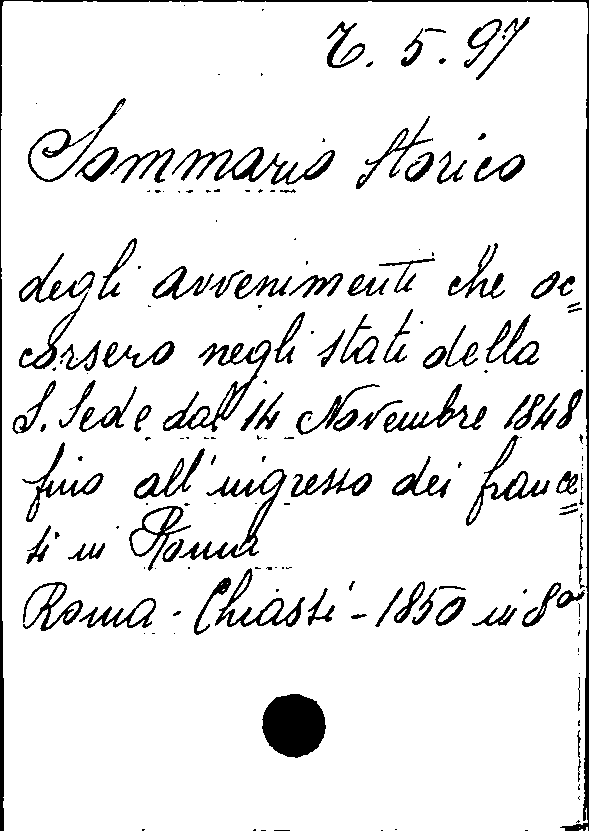 7. 5. 97
Sommario Storico
degli avvenimenti che oc=
corsero negli stati della
S. Sede dal 14 Novembre 1848
fino all'ingresso dei france=
si in Roma
Roma - Chiassi - 1850 in 8º